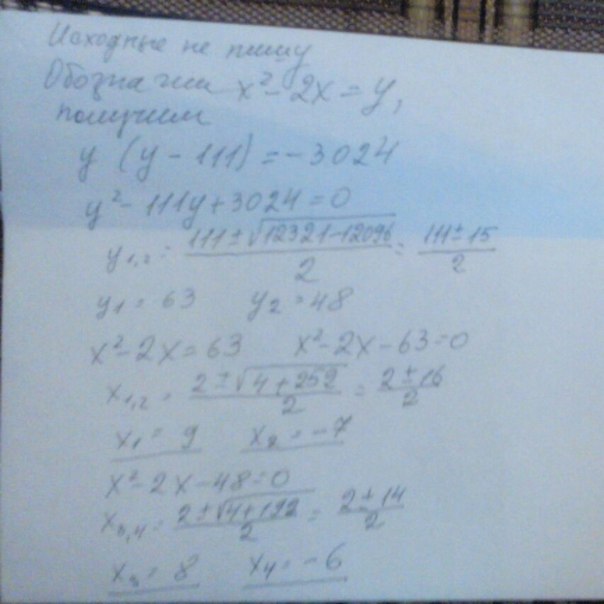 Исходные не пишу
Обозначим x² - 2x = y,
получим
y (y - 111) = -3024
y² - 111y + 3024 = 0
y₁,₂ = (111 ± √(12321 - 12096)) / 2 = (111 ± 15) / 2
y₁ = 63 y₂ = 48
x² - 2x = 63 x² - 2x - 63 = 0
x₁,₂ = (2 ± √(4 + 252)) / 2 = (2 ± 16) / 2
x₁ = 9 x₂ = -7
x² - 2x - 48 = 0
x₃,₄ = (2 ± √(4 + 192)) / 2 = (2 ± 14) / 2
x₃ = 8 x₄ = -6